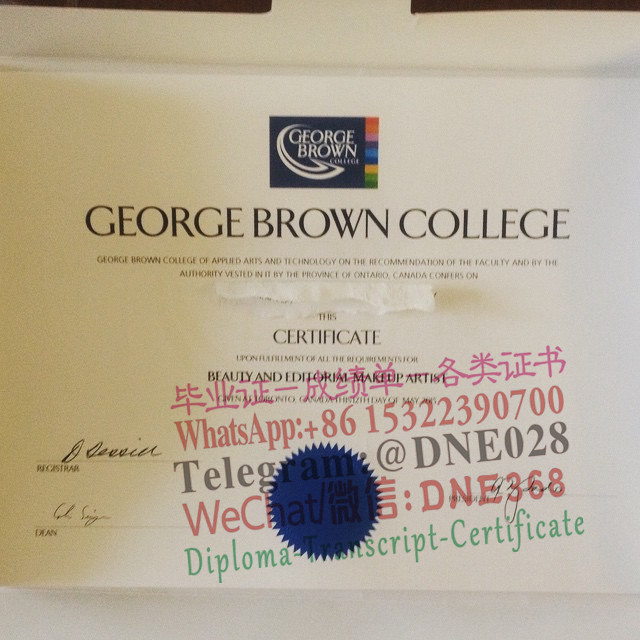 GEORGE
BROWN
COLLEGE
GEORGE BROWN COLLEGE
GEORGE BROWN COLLEGE OF APPLIED ARTS AND TECHNOLOGY ON THE RECOMMENDATION OF THE FACULTY AND BY THE
AUTHORITY VESTED IN IT BY THE PROVINCE OF ONTARIO, CANADA CONFERS ON
THIS
CERTIFICATE
UPON FULFILLMENT OF ALL THE REQUIREMENTS FOR
BEAUTY AND EDITORIAL MAKEUP ARTIST
GIVEN AT TORONTO, CANADA THIS 12TH DAY OF MAY 2015
毕业证-成绩单-各类证书
WhatsApp:+86 15322390700
Telegram: @DNE028
WeChat/微信: DNE368
Diploma-Transcript-Certificate
REGISTRAR
PRESIDENT
DEAN